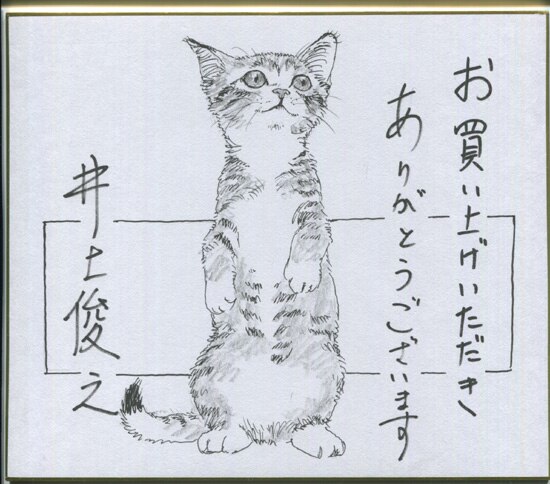 お買い上げいただき
ありがとうございます
井土俊之